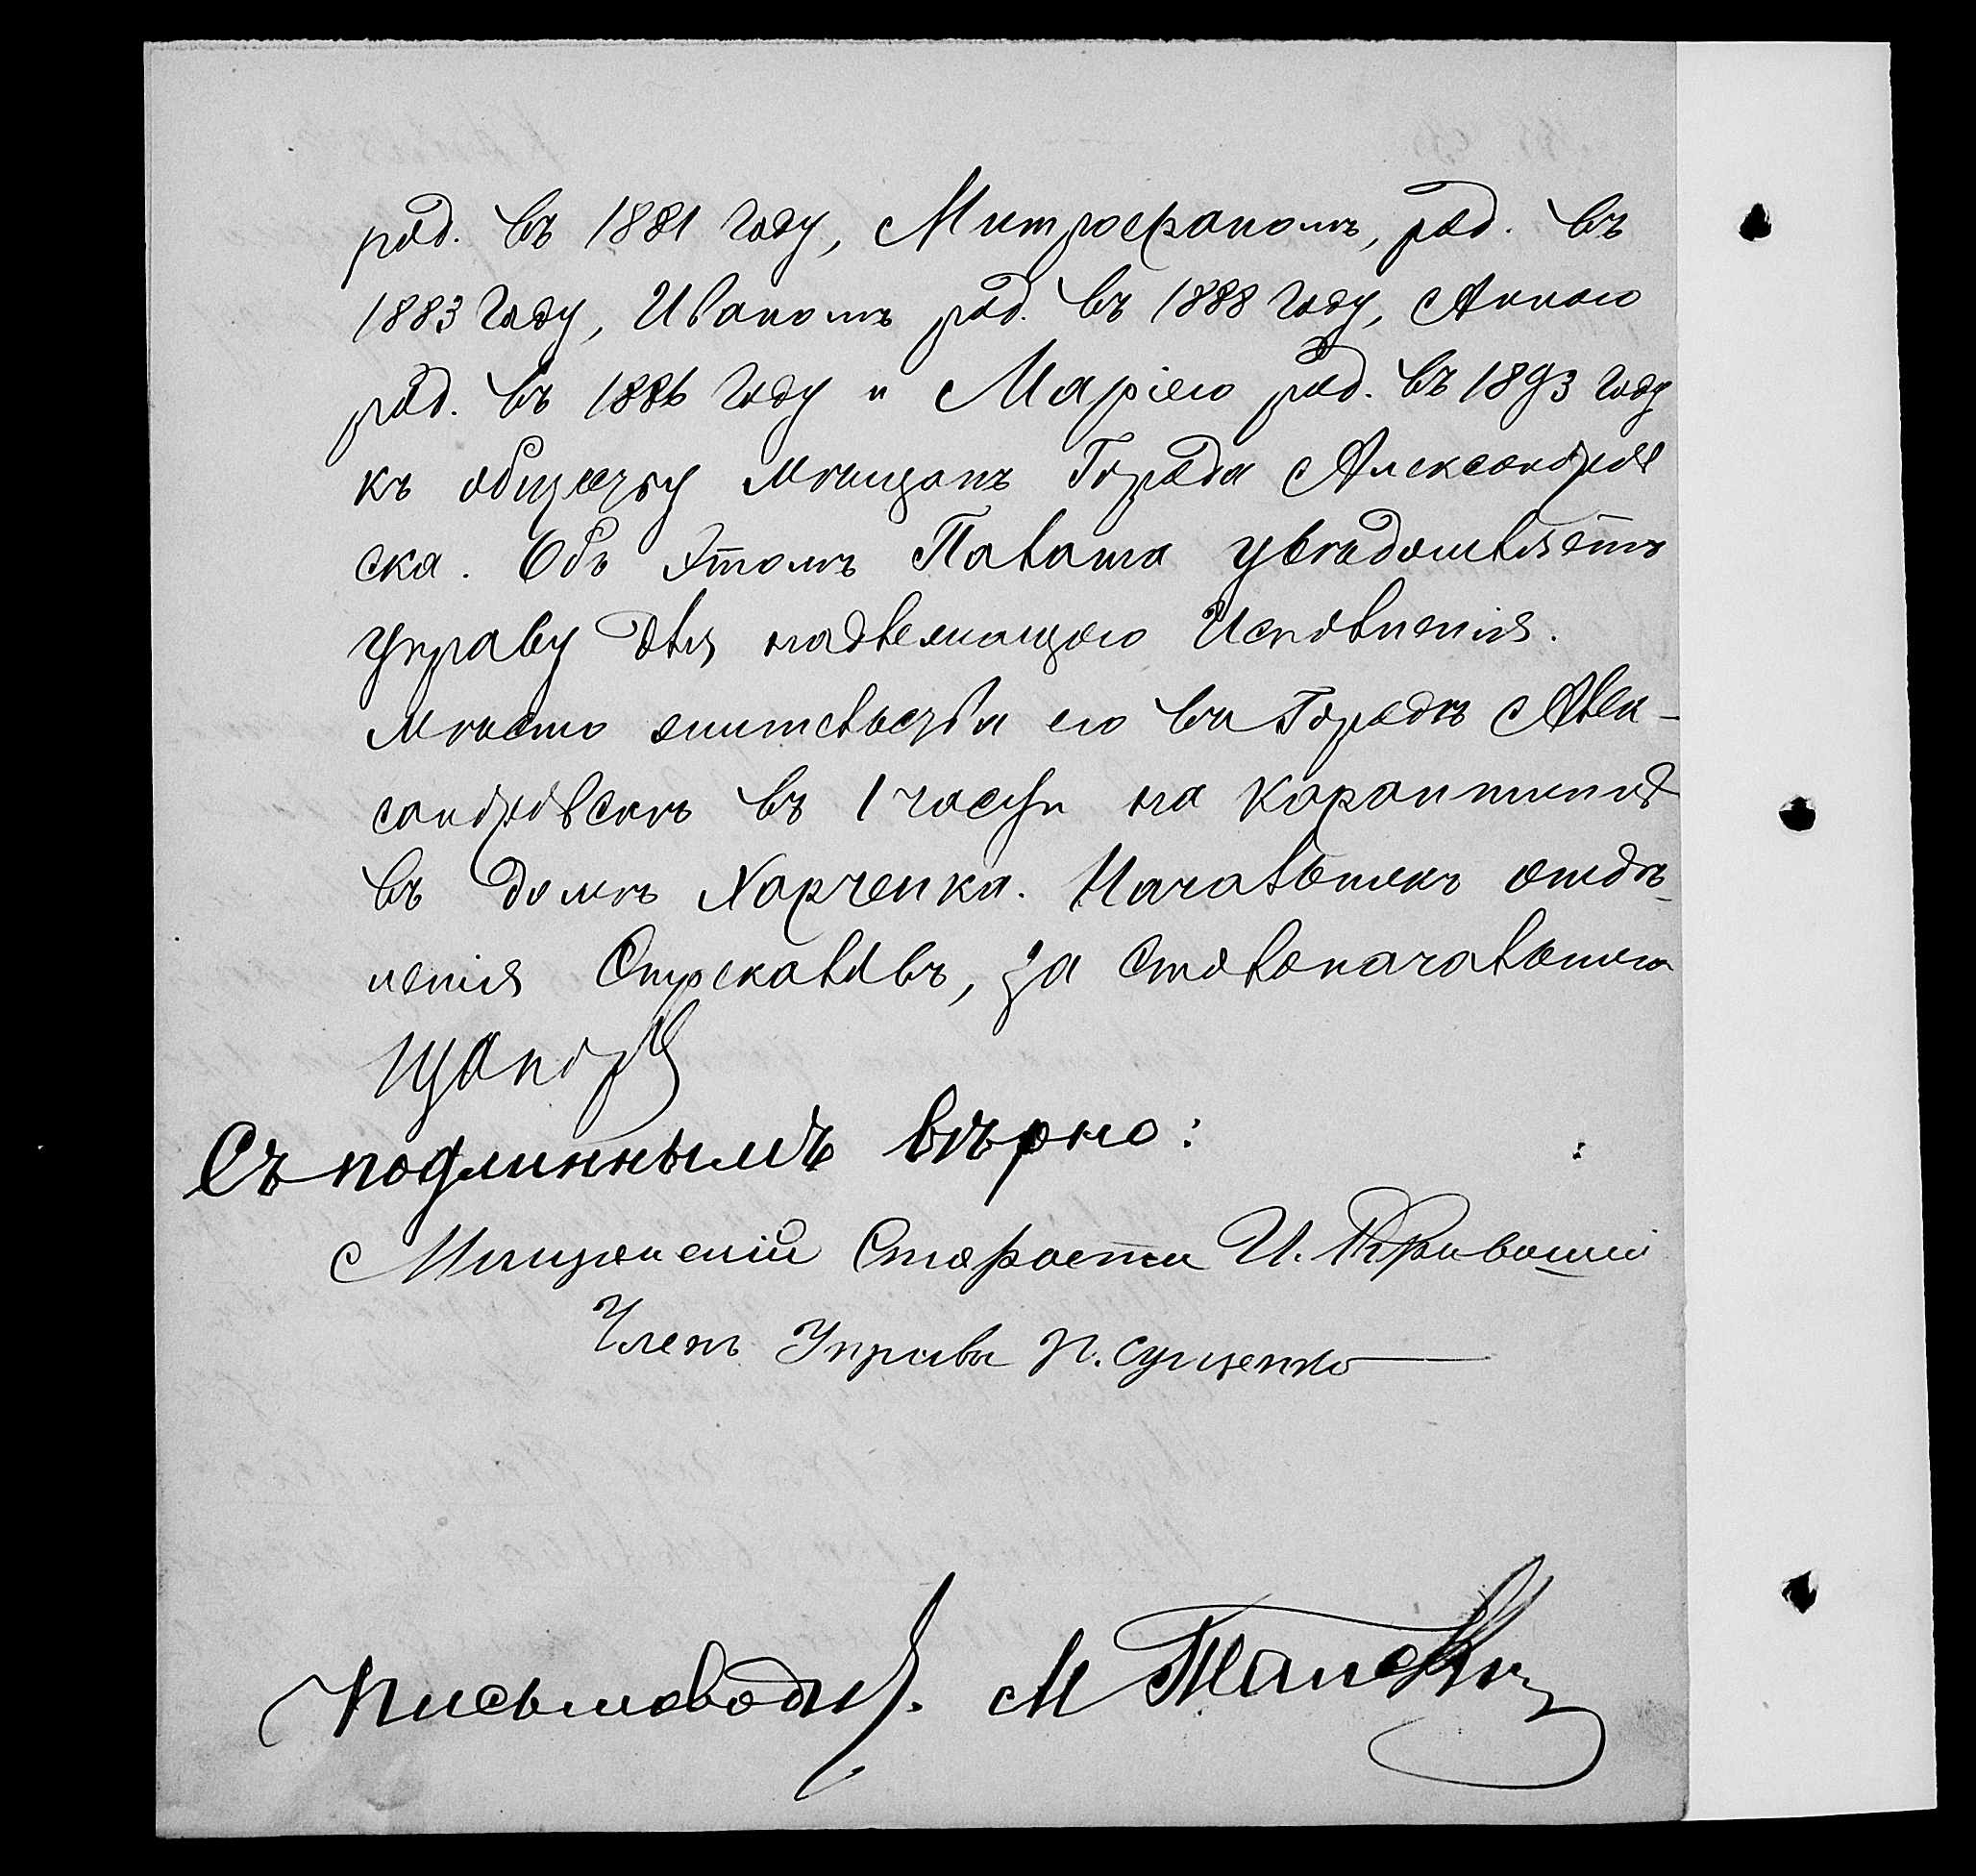 род. въ 1881 году, Митрофаномъ, род. въ
1883 году, Иваномъ род. въ 1888 году, Анною
род. въ 1886 году и Маріею род. въ 1893 году
къ обществу мѣщанъ города Александров
ска. Объ этомъ Палата увѣдомляетъ
управу для надлежащаго исполненія.
Мѣсто жительства его въ городѣ Алек-
сандровскѣ въ 1 части на Карантинной
въ домѣ Харченка. Начальникъ отдѣ-
ленія Стрекаловъ, за столоначальника
Съ подлиннымъ вѣрно:
Мѣщанскій Староста И.
Членъ Управы П. Сущенко
Письмоводит. М